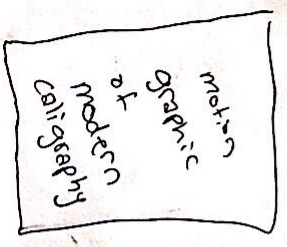 motion
graphic
of
modern
caligraphy